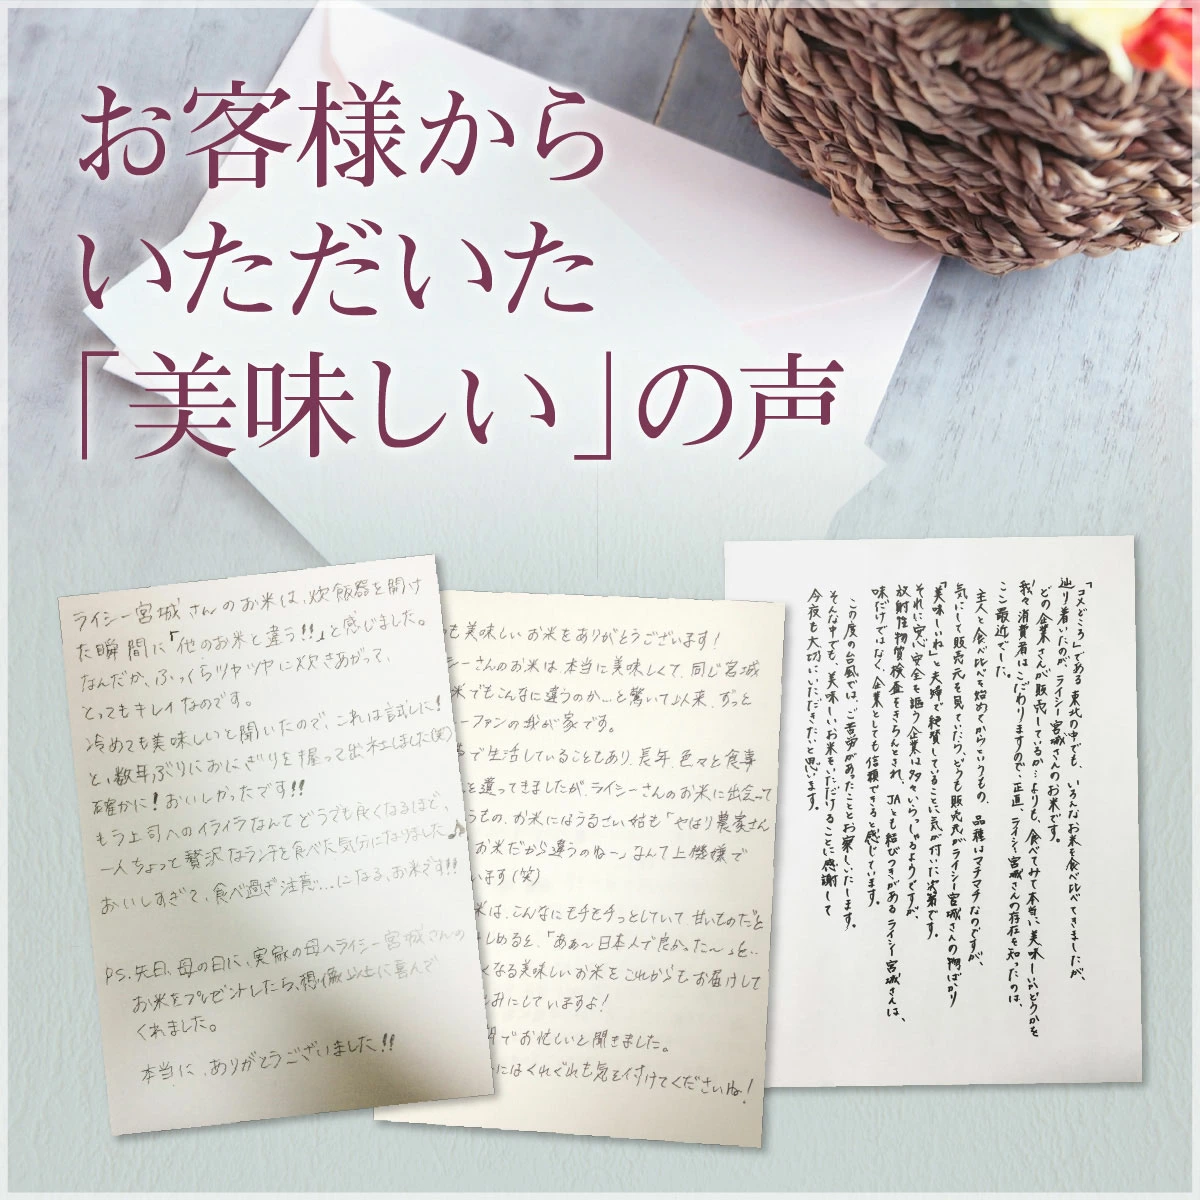 お客様から
いただいた
「美味しい」の声
ライシー宮城さんのお米は、炊飯器を開け
た瞬間に「他のお米と違う!!」と感じました。
なんだか、ふっくらツヤツヤに炊きあがって、
とってもキレイなのです。
冷めても美味しいと聞いたので、これは試しに!
と、数年ぶりにおにぎりを握って出社しました(笑)
確かに!おいしかったです!!
もう上司へのイライラなんてどうでも良くなるほど。
一人ちょっと贅沢なランチを食べた気分になりました♪
おいしすぎて、食べ過ぎ注意…になる、お米です!!
PS.先日、母の日に、実家の母へライシー宮城さんの
お米をプレゼントしたら、想像以上に喜んで
くれました。
本当に、ありがとうございました!!
も美味しいお米をありがとうございます!
シーさんのお米は本当に美味しくて、同じ宮城
米でもこんなに違うのか…と驚いて以来、ずっと
ーファンの我が家です。
で生活していることもあり、長年、色々と食事
を違ってきましたが、ライシーさんのお米に出会って
うもの、お米にはうるさい姑も「やはり農家さん
お米だから違うのねー」なんて上機嫌で
います(笑)
米は、こんなにモチモチっとしていて、甘いものだと
しめると、「あぁ〜日本人で良かった〜」と…
くなる美味しいお米をこれからもお届けして
しみにしていますよ!
でお忙しいと聞きました。
にはくれぐれも気を付けてくださいね!
「コメどころ」である東北の中でも、いろんなお米を食べ比べてきましたが、
辿り着いたのが、ライシー宮城さんのお米です。
どの企業さんが販売しているか…よりも、食べてみて本当に美味しいかどうかを
我々消費者はこだわりますので、正直、ライシー宮城さんの存在を知ったのは、
ここ最近でした。
主人と食べ比べを始めてからというもの、品種はマチマチなのですが、
気にして販売元を見ていたら、どうも販売元がライシー宮城さんの物ばかり
「美味しいね」と夫婦で絶賛していることに気が付いた次第です。
それに、安心安全を謳う企業は多々いらっしゃるようですが、
放射性物質検査をきちんとされ、JAとも結びつきがあるライシー宮城さんは、
味だけではなく、企業としても信頼できると感じています。
この度の台風では、ご苦労があったこととお察しいたします。
そんな中でも、美味しいお米をいただけることに感謝して
今夜も大切にいただきたいと思います。